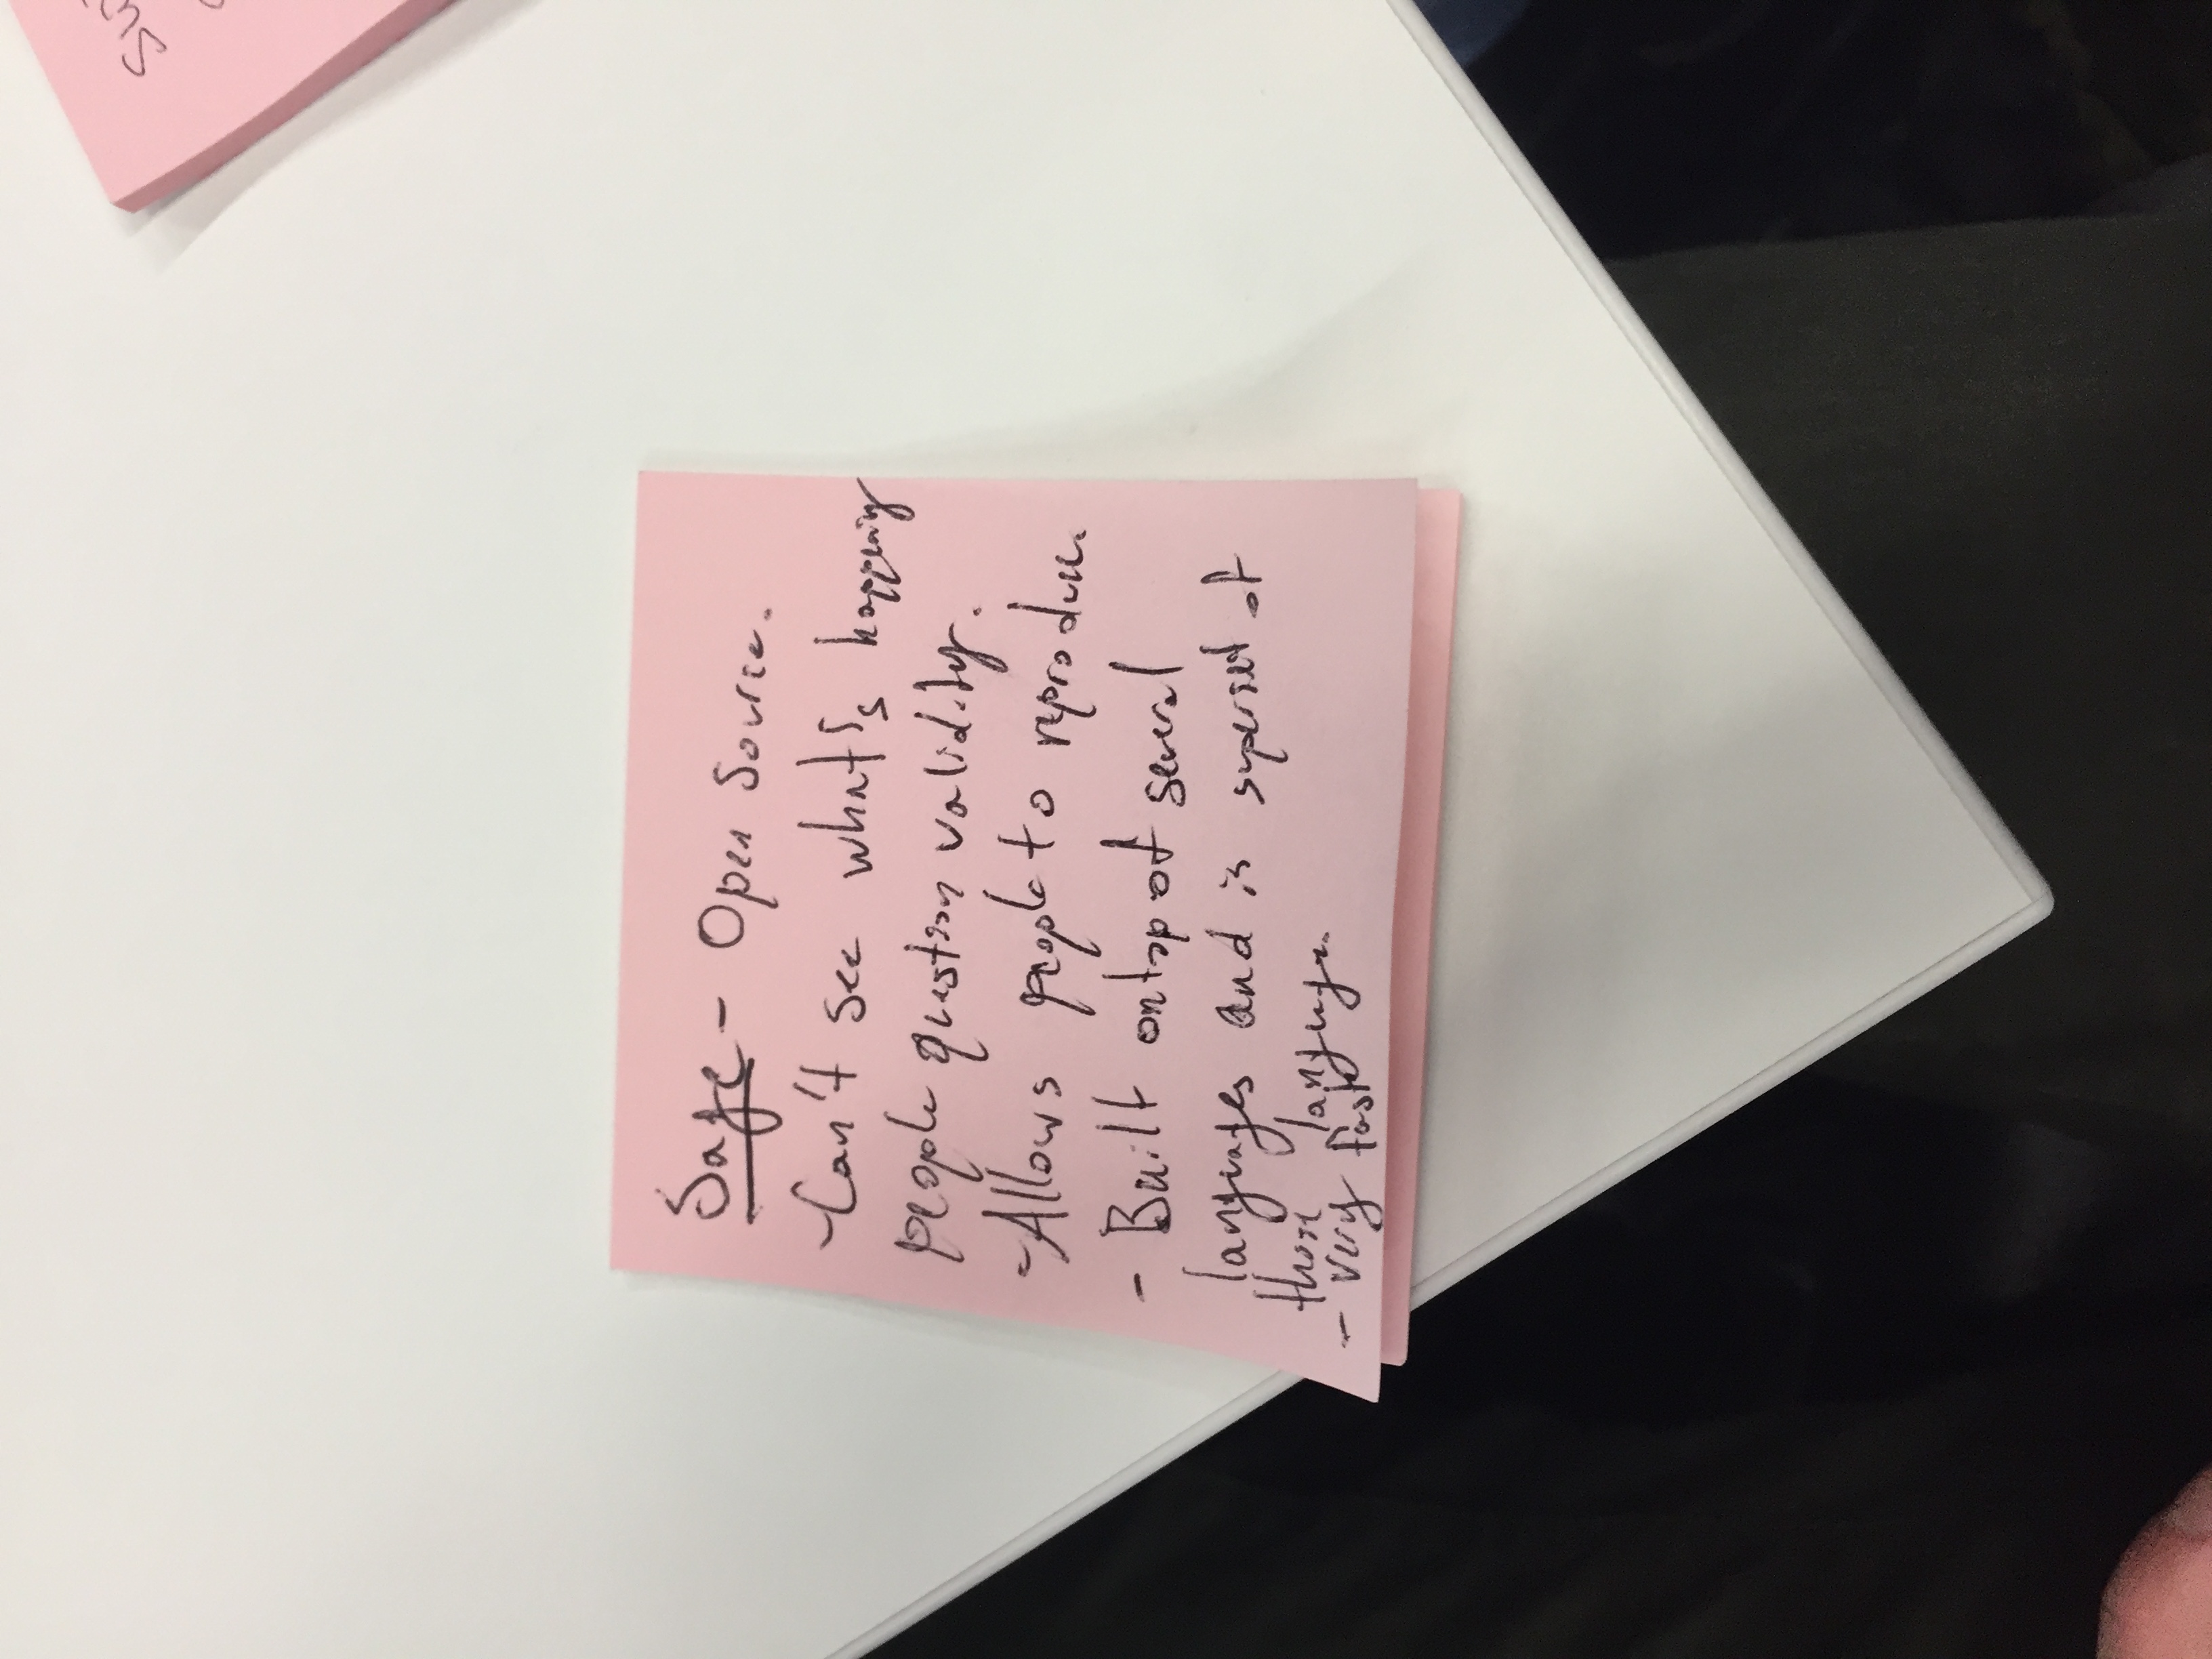 Sage - Open Source.
- Can't see what's happening
people question validity.
- Allows people to reproduce.
- Built ontop of several
languages and is superset of
those language.
- very fast